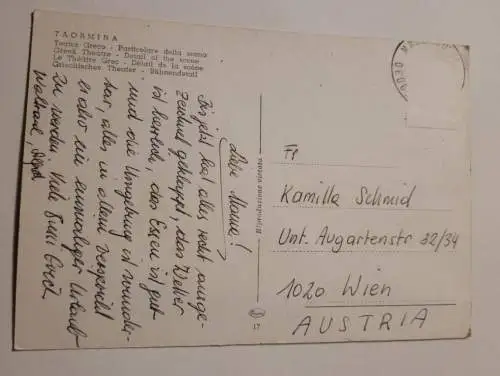 TAORMINA
Teatro Greco - Particolare della scena
Greek Theatre - Detail of the scene
Le Théâtre Grec - Détail de la scène
Griechisches Theater - Bühnendetail
Liebe Mama!
Bis jetzt hat alles recht ausge-
zeichnet geklappt, das Wetter
ist herrlich, das Essen ist gut
und die Umgebung ist wunder-
bar, alles in allem verspricht
es also ein einmaliger Urlaub
zu werden. Viele Bussi Euch
Waltraud,
Fr
Kamilla Schmid
Unt. Augartenstr 32/34
1020 Wien
AUSTRIA